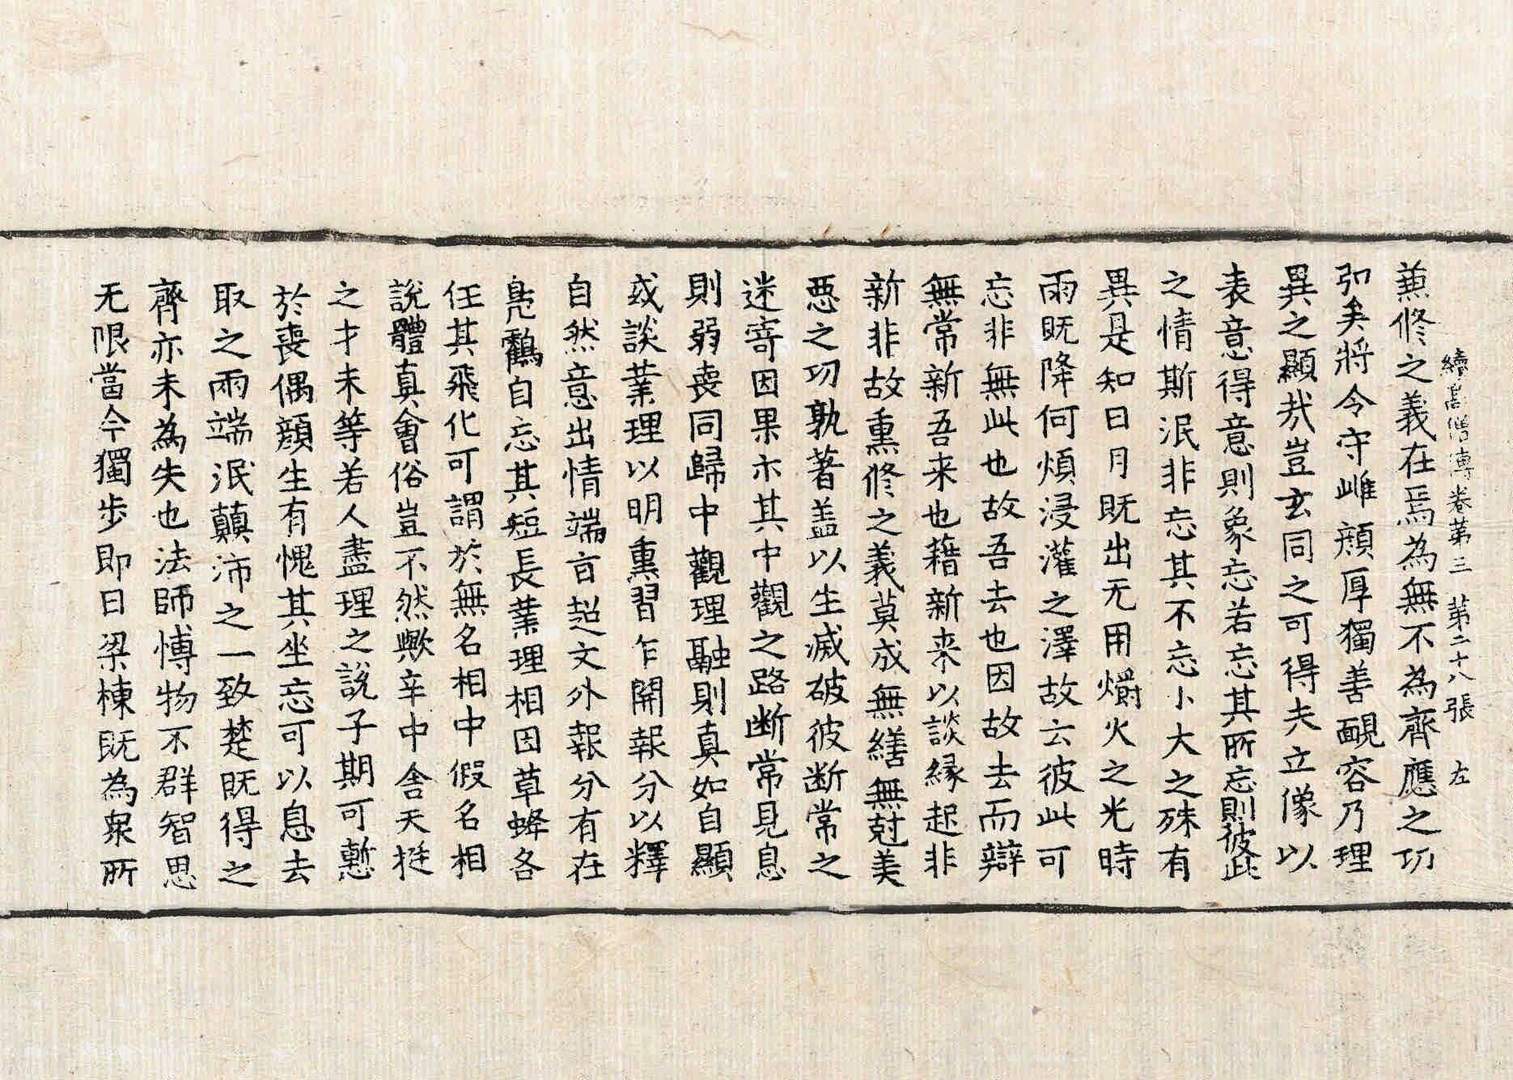 續高僧傳卷第三 第二十八張 左
兼修之義在焉為無不為齊應之功
弘矣將令守雌頹厚獨善靦容乃理
異之顯哉豈玄同之可得夫立像以
表意得意則象忘若忘其所忘則彼此
之情斯泯非忘其不忘小大之殊有
異是知日月既出无用爝火之光時
雨既降何煩浸灌之澤故云彼此可
忘非無此也故吾去也因故去而辯
無常新吾来也藉新来以談緣起非
新非故熏修之義莫成無繕無尅美
惡之功孰著盖以生滅破彼断常之
迷寄因果示其中觀之路断常見息
則弱喪同歸中觀理融則真如自顯
或談業理以明熏習乍開報分以釋
自然意出情端言超文外報分有在
鳧鶴自忘其短長業理相因草蜂各
任其飛化可謂於無名相中假名相
說體真會俗豈不然歟辛中舍天挺
之才未等若人盡理之說子期可慙
於喪偶顔生有愧其坐忘可以息去
取之兩端泯顛沛之一致楚既得之
齊亦未為失也法師博物不群智思
无限當今獨步即日梁棟既為衆所